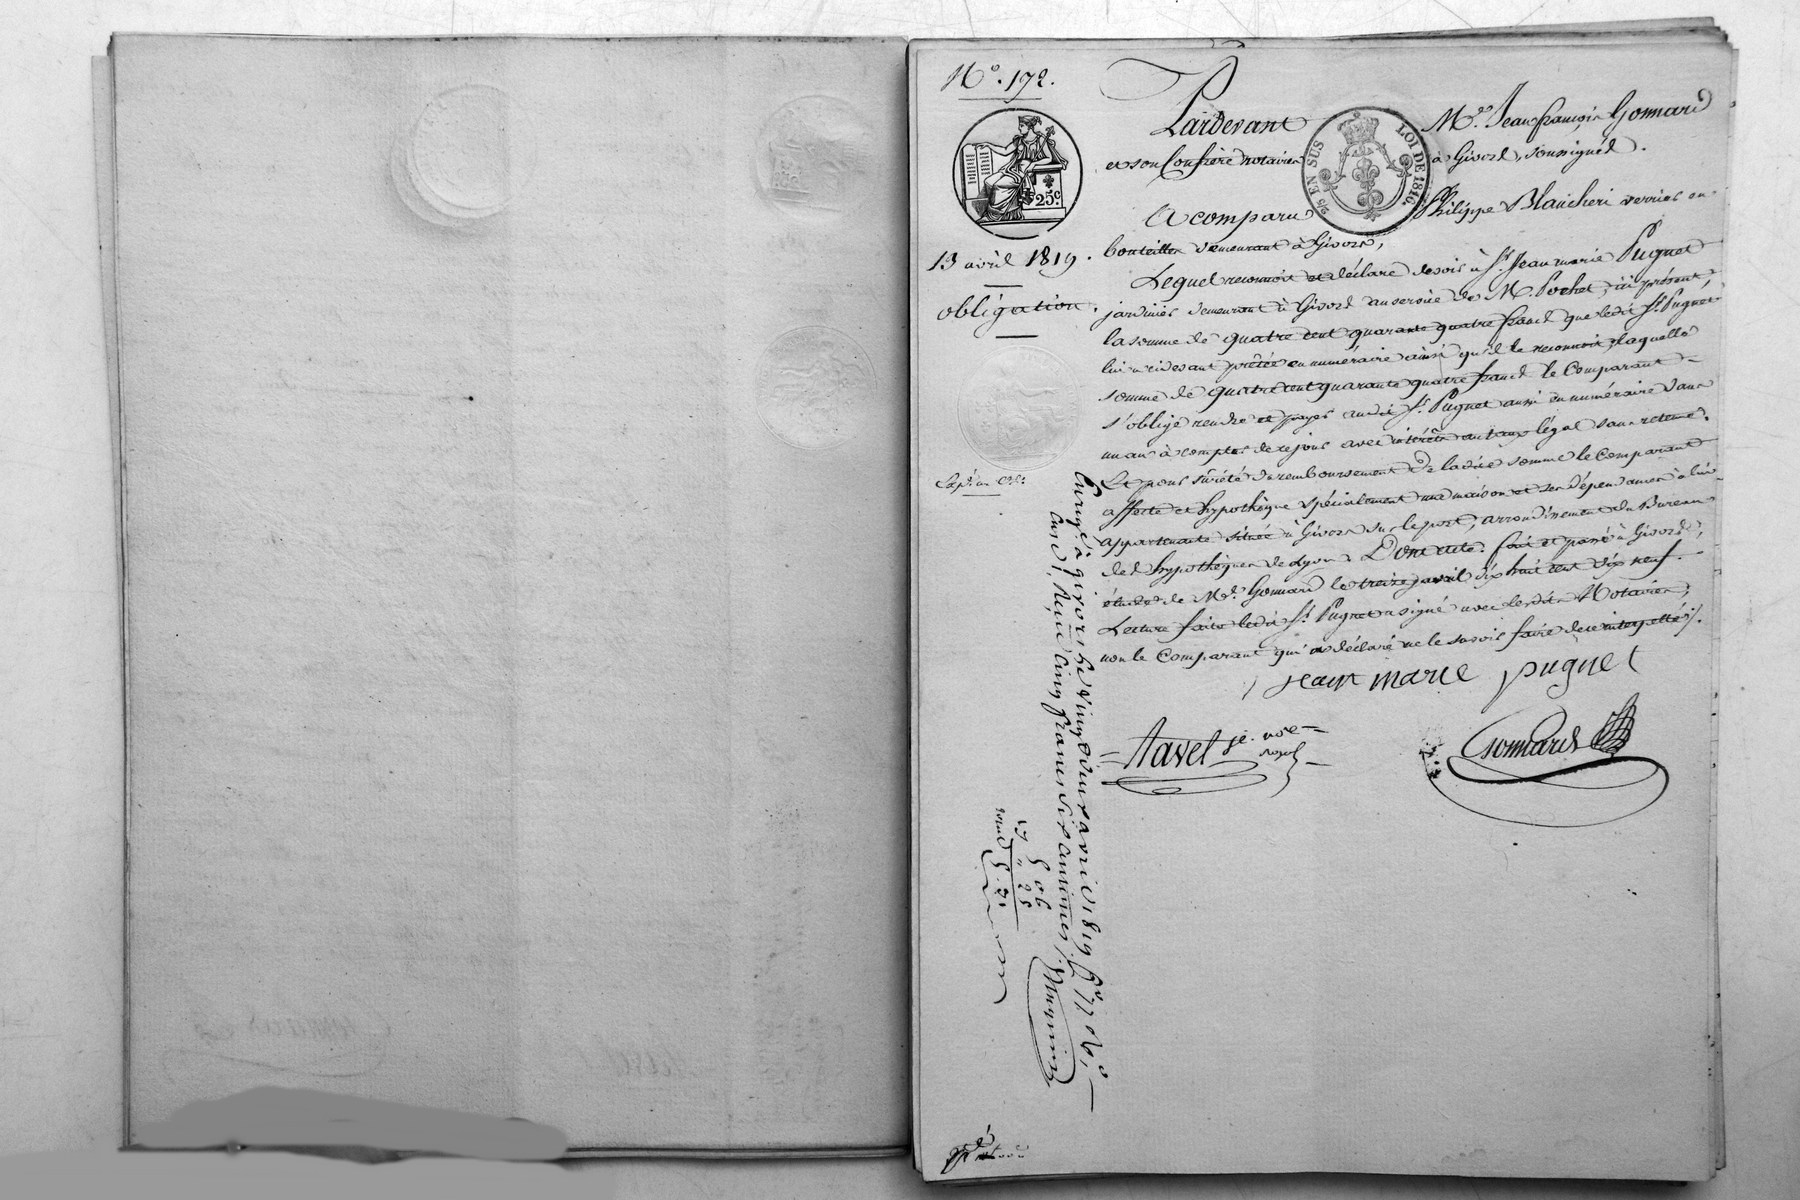 N.° 172.
25c
13 avril 1819.
obligation.
Pardevant Me. Jean françois Gonnard
et son Confrère notaires à Givors, soussignés.
EN SUS LOI DE 1816.
A comparu Philippe Blancheri verrier en
bouteilles demeurant à Givors,
Lequel reconnoit et déclare devoir à Sr. Jean marie Pugnet
jardinier demeurant à Givors au service de M. Pochet, ici présent,
la somme de quatre cent quarante quatre francs que ledit Sr. Pugnet
lui a cidevant prêtée en numéraire ainsi qu'il le reconnoit, laquelle
somme de quatre cent quarante quatre francs le Comparant
s'oblige rendre et payer audit Sr. Pugnet aussi en numéraire dans
un an à compter de ce jour avec intérêts au taux légal sans retenue.
Et pour sûreté du remboursement de ladite somme le Comparant
affecte et hypothèque spécialement une maison et ses dépendances à lui
appartenante située à Givors sur le port, arrondissement du Bureau
des hypothèques de Lyon. Dont acte. fait et passé à Givors,
étude de Me. Gonnard le treize avril dix huit cent dix neuf.
Lecture faite ledit Sr. Pugnet a signé avec lesdits Notaires,
non le Comparant qui a déclaré ne le savoir faire de ce interpellé.
jean marie pugnet
Tavel Gonnard
Enreg.é à givors le vingt deux avril 1819. f° 77
cinq francs six centimes
5 06
5.